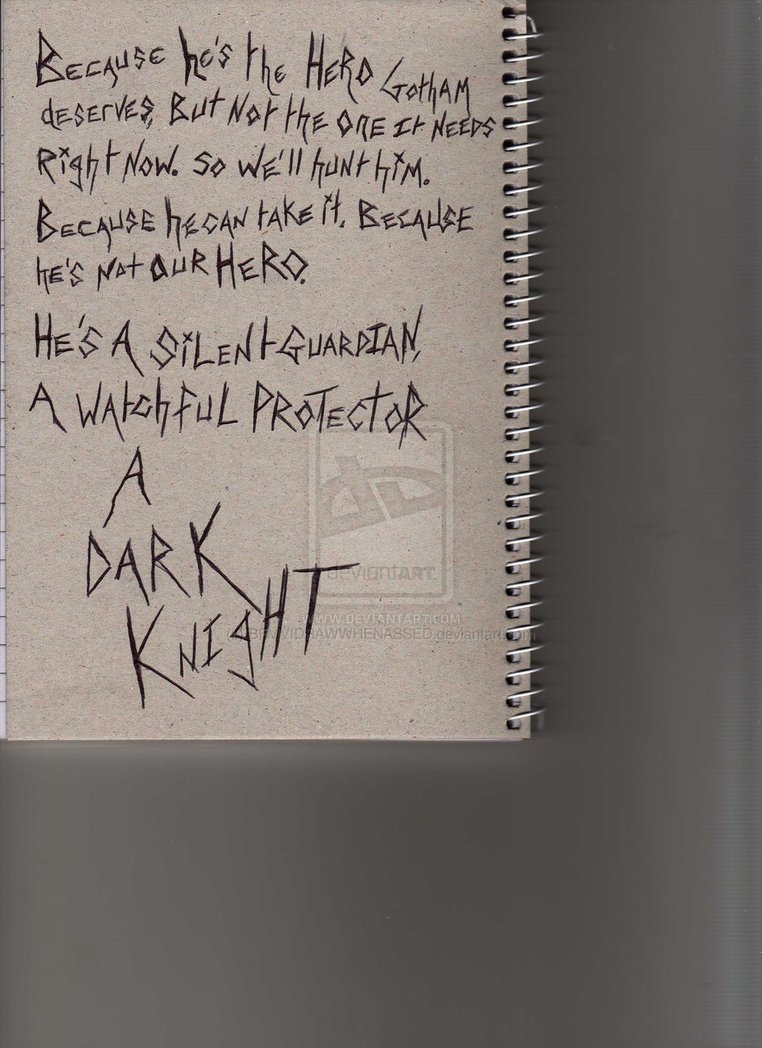 Because he's the Hero Gotham
deserves, But Not the one It Needs
Right Now. So We'll hunt him.
Because he can take it. Because
he's not our Hero.
He's A Silent Guardian,
A watchful Protector
A
Dark
Knight
deviantART
WWW.DEVIANTART.COM